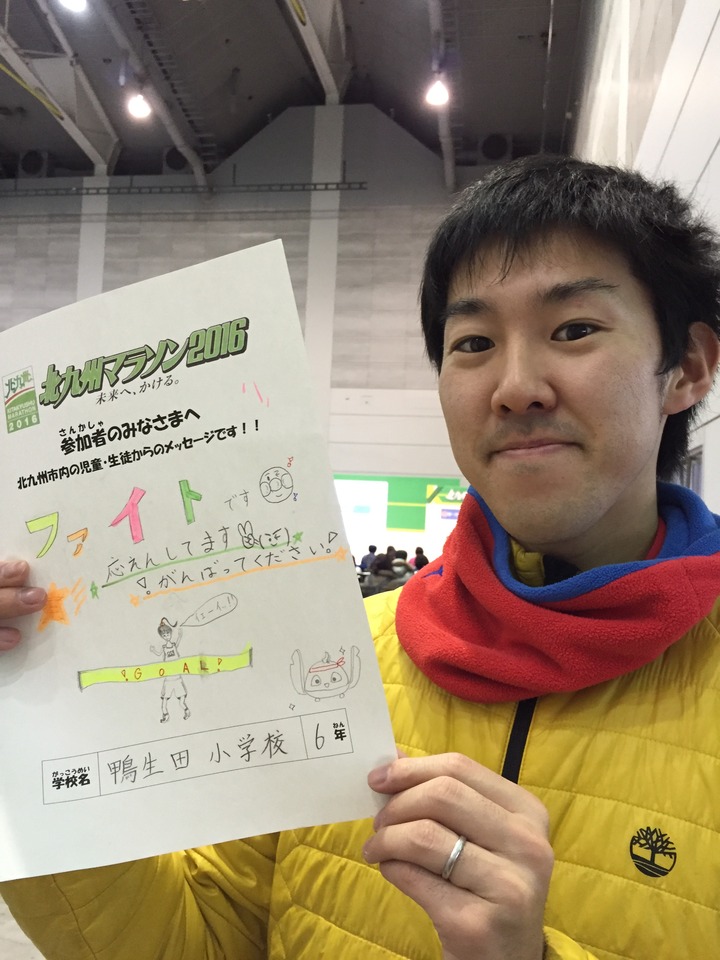 北九州マラソン2016
未来へ、かける。
KITAKYUSHU
MARATHON
2016
さんかしゃ
参加者のみなさまへ
北九州市内の児童・生徒からのメッセージです！！
ファイトです
応えんしてます
!がんばってください。!
イェーイ!!
!GOAL!
がっこうめい
学校名
鴨生田 小学校
6
ねん
年